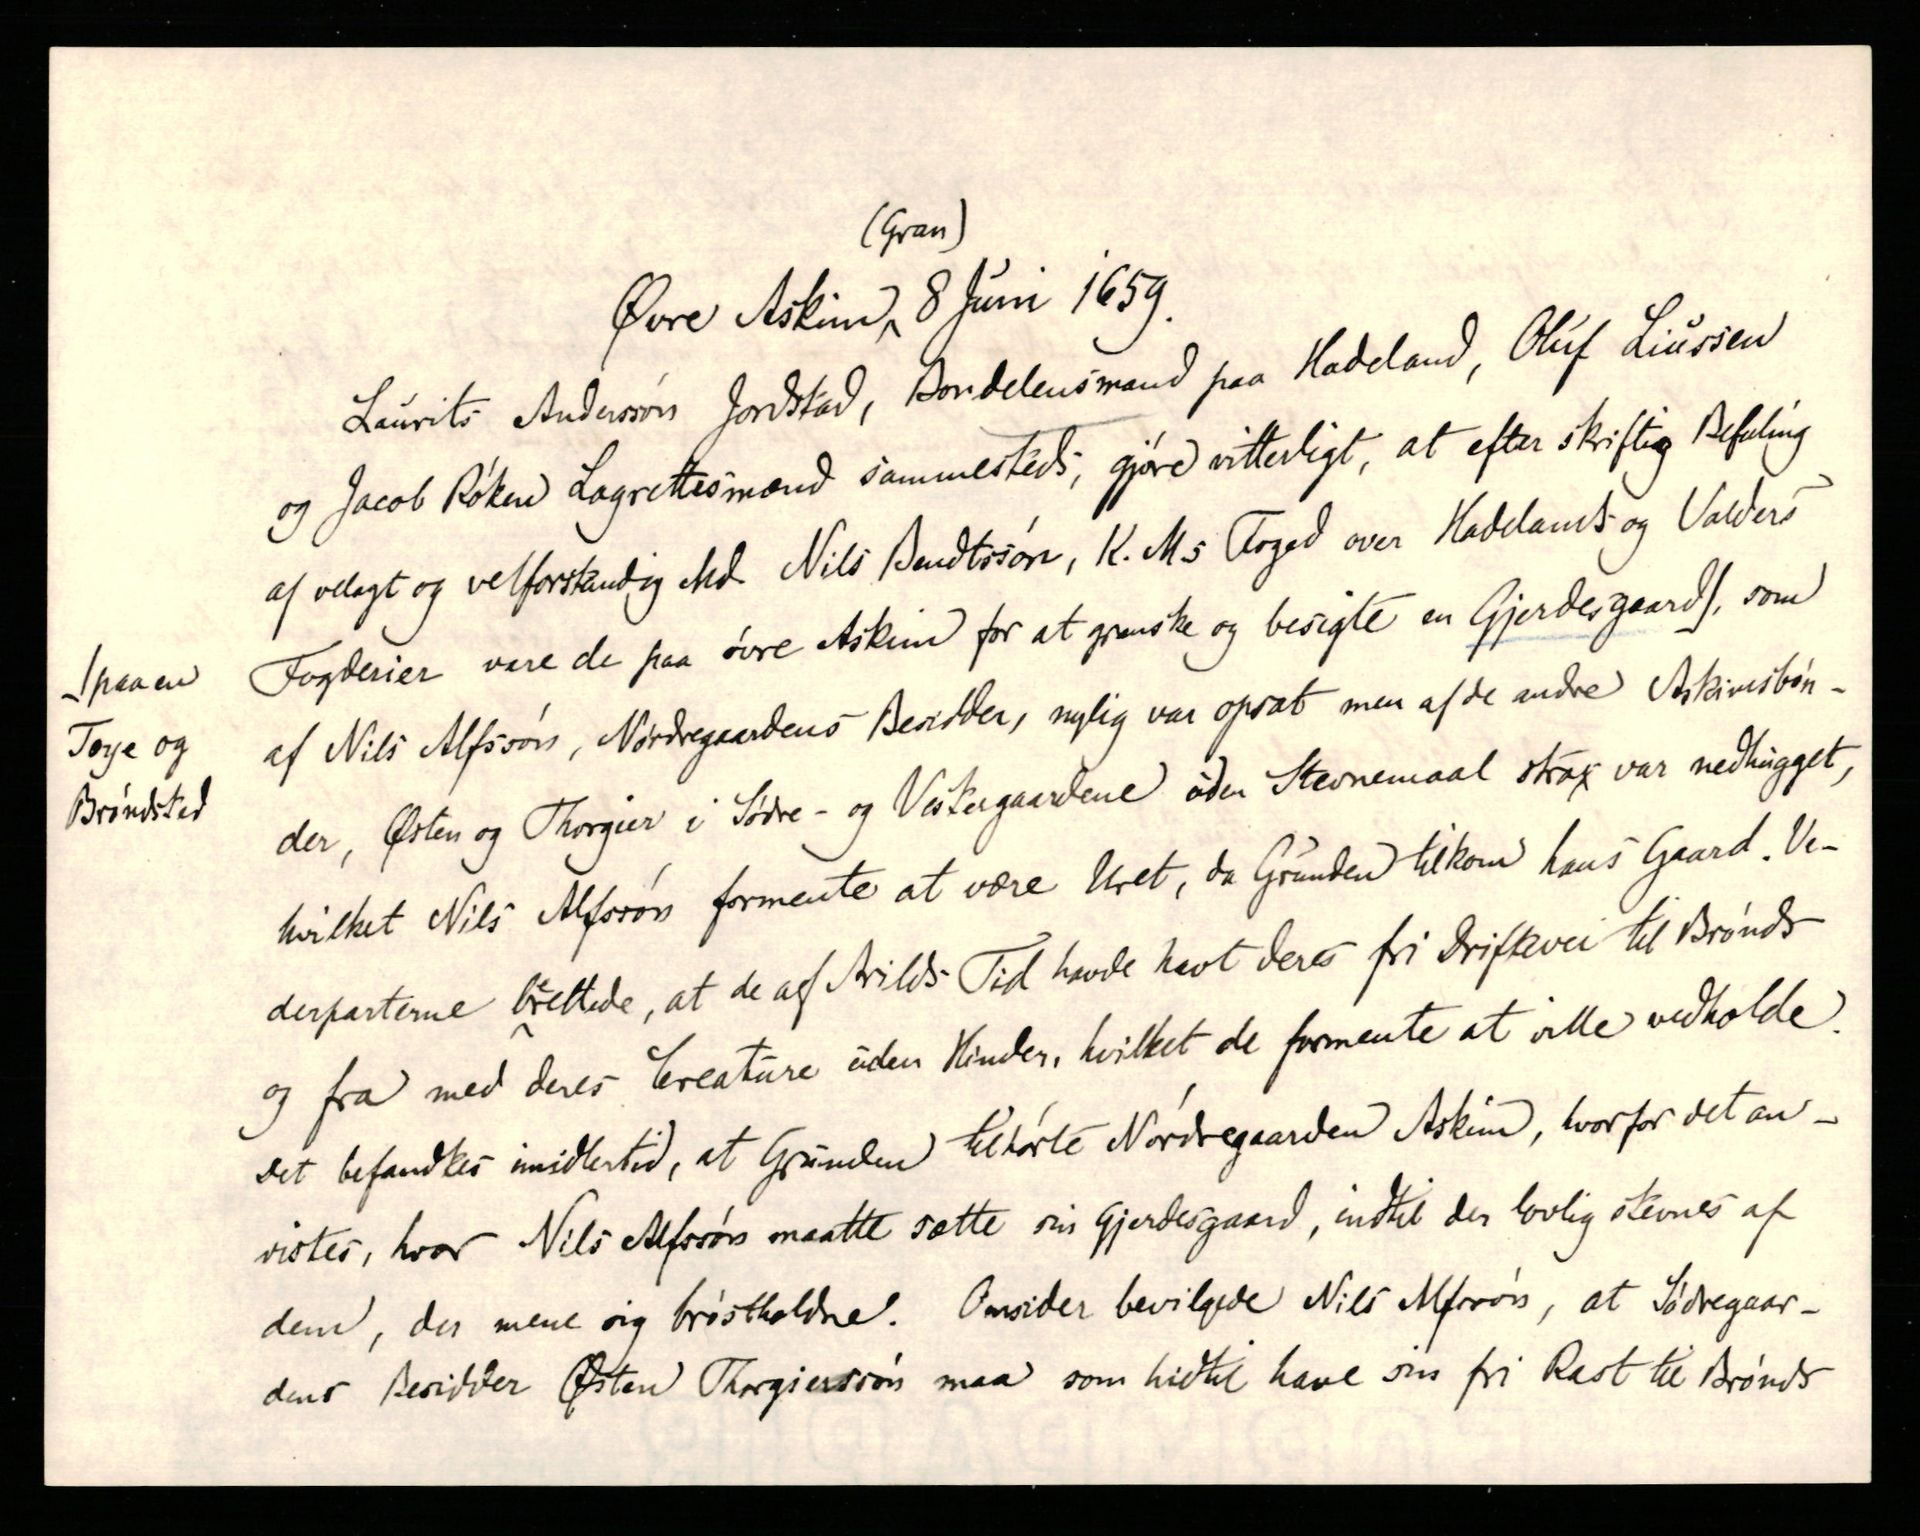 (Gran)
Øvre Askim, 8 Juni 1659.
Laurits Anderssøn Jordstad, Bondelensmand paa Hadeland, Oluf Liussen
og Jacob Røken Lagrettesmænd sammesteds, gjøre vitterligt, at efter skriftlig Befaling
af velagt og velforstandig Md Nils Bendtssøn, K. Ms Foged over Hadelands og Valders
Fogderier vare de paa øvre Askim for at granske og besigte en Gjerdesgaard⌡, som
⌡paa en
Toye og
Brøndsted
af Nils Alfssøn, Nordregaardens Besidder, nylig var opsat men af de andre Askimsbøn-
der, Østen og Thorgier i Sødre- og Vestergaardene uden Stevnemaal strax var nedhugget,
hvilket Nils Alfssøn formente at være Uret, da Grunden tilkom hans Gaard. Ve-
derparterne berettede, at de af Arilds Tid havde havt deres fri Driftevei til Brønds
og fra med deres Creature uden Hinder, hvilket de formente at ville vedholde.
Det befandtes imidlertid, at Grunden tilhørte Nordregaarden Askim, hvorfor det an-
vistes, hvor Nils Alfssøn maatte sætte sin Gjerdesgaard, indtil der lovlig stevnes af
dem, der mene sig brøstholdne. Omsider bevilgede Nils Alfssøn, at Sødregaar-
dens Besidder Østen Thorgierssøn maa som hidtil have sin fri Rast til Brønds